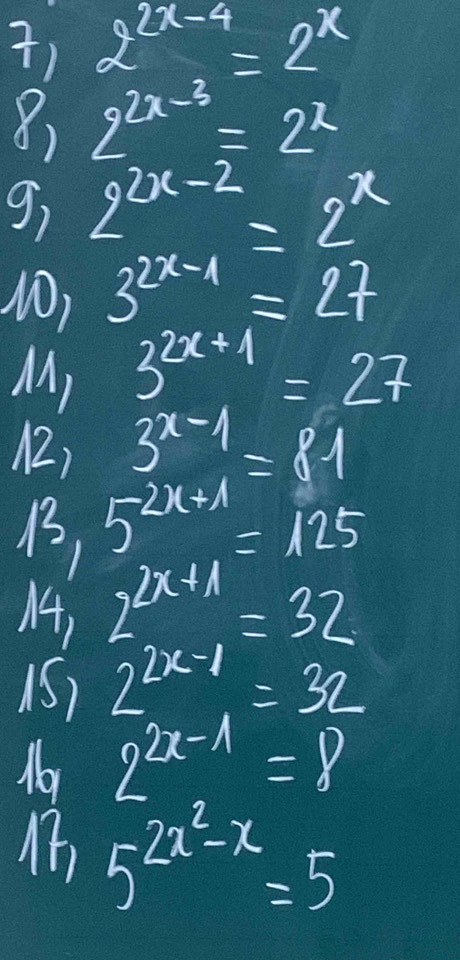 7, 2^{2x-4} = 2^x
8, 2^{2x-3} = 2^x
9, 2^{2x-2} = 2^x
10, 3^{2x-1} = 27
11, 3^{2x+1} = 27
12, 3^{x-1} = 81
13, 5^{2x+1} = 125
14, 2^{2x+1} = 32
15, 2^{2x-1} = 32
16, 2^{2x-1} = 8
17, 5^{2x^2-x} = 5